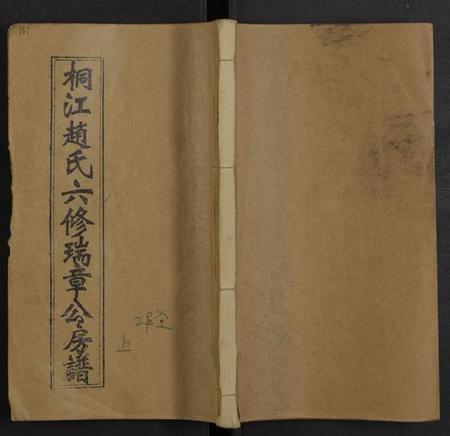 161
桐江趙氏六修瑞章公房譜
上